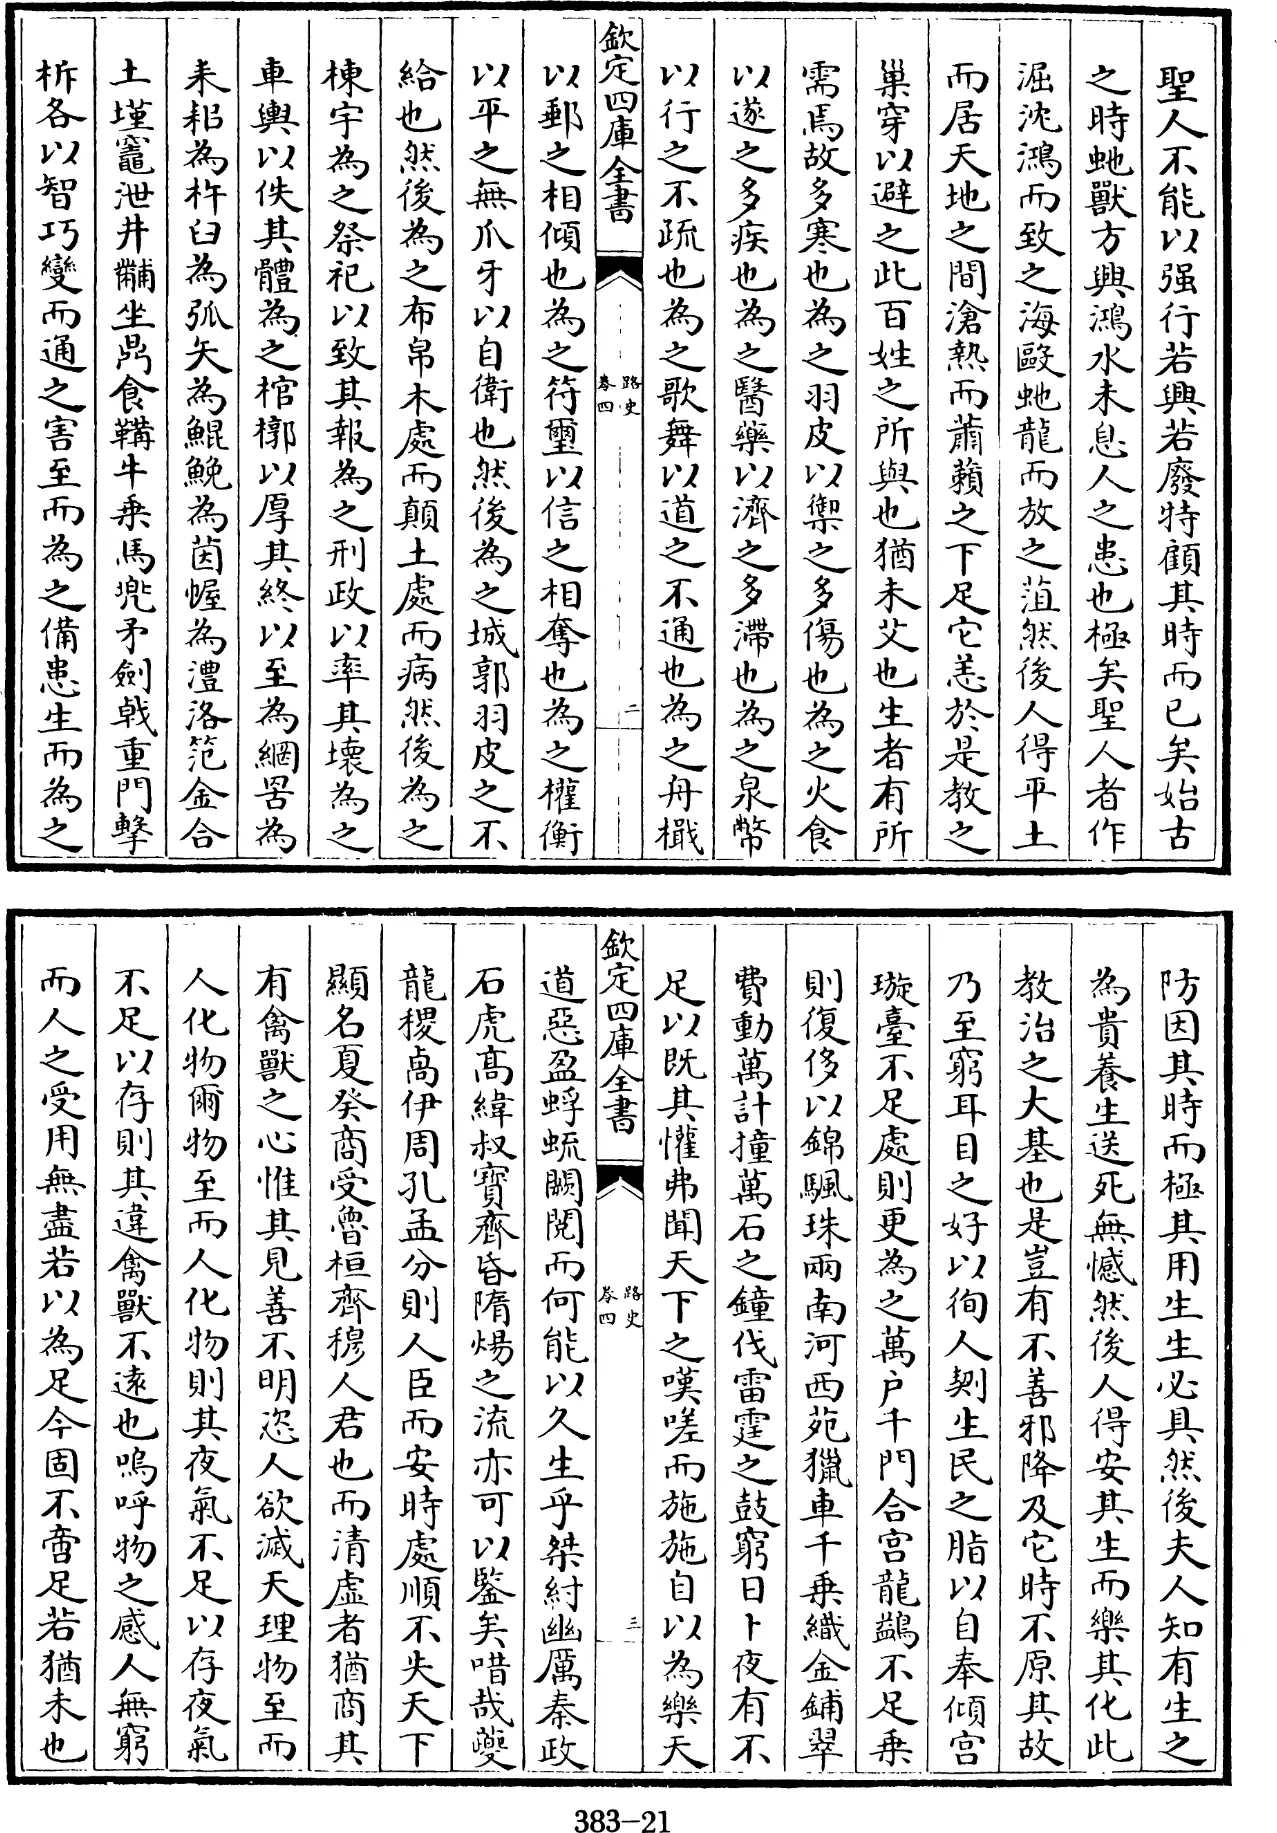 聖人不能以强行若興若廢特顧其時而已矣始古
之時虵獸方興鴻水未息人之患也極矣聖人者作
沈鴻而致之海敺虵龍而放之菹然後人得平土
而居天地之間滄熱而薾籟之下足它恙於是教之
巢穿以避之此百姓之所與也猶未艾也生者有所
需焉故多寒也為之羽皮以禦之多傷也為之火食
以遂之多疾也為之醫藥以濟之多滯也為之泉幣
以行之不疏也為之歌舞以道之不通也為之舟檝
欽定四庫全書
路史
卷四
二
以郵之相傾也為之符璽以信之相奪也為之權衡
以平之無爪牙以自衛也然後為之城郭羽皮之不
給也然後為之布帛木處而顛土處而病然後為之
棟宇為之祭祀以致其報為之刑政以率其壞為之
車輿以佚其體為之棺槨以厚其終以至為網罟為
耒耜為杵臼為弧矢為鯤鮸為茵幄為澧洛笵金合
土墐竈泄井黼坐鼎食鞲牛乘馬兜矛劍戟重門擊
柝各以智巧變而通之害至而為之備患生而為之
防因其時而極其用生生必具然後夫人知有生之
為貴養生送死無憾然後人得安其生而樂其化此
教治之大基也是豈有不善邪降及它時不原其故
乃至窮耳目之好以徇人剟生民之脂以自奉傾宮
璇臺不足處則更為之萬戶千門合宮龍鷁不足乘
則復侈以錦颿珠兩南河西苑獵車千乘織金鋪翠
費動萬計撞萬石之鐘伐雷霆之鼓窮日卜夜有不
足以既其懽弗聞天下之嘆嗟而施施自以為樂天
欽定四庫全書
路史
卷四
三
道惡盈蜉蝣闕閱而何能以久生乎桀紂幽厲秦政
石虎高緯叔寶齊昏隋煬之流亦可以鑒矣唶哉夔
龍稷卨伊周孔孟分則人臣而安時處順不失天下
顯名夏癸商受魯桓齊穆人君也而清虛者猶商其
有禽獸之心惟其見善不明恣人欲滅天理物至而
人化物爾物至而人化物則其夜氣不足以存夜氣
不足以存則其違禽獸不遠也嗚呼物之感人無窮
而人之受用無盡若以為足今固不啻足若猶未也
383-21